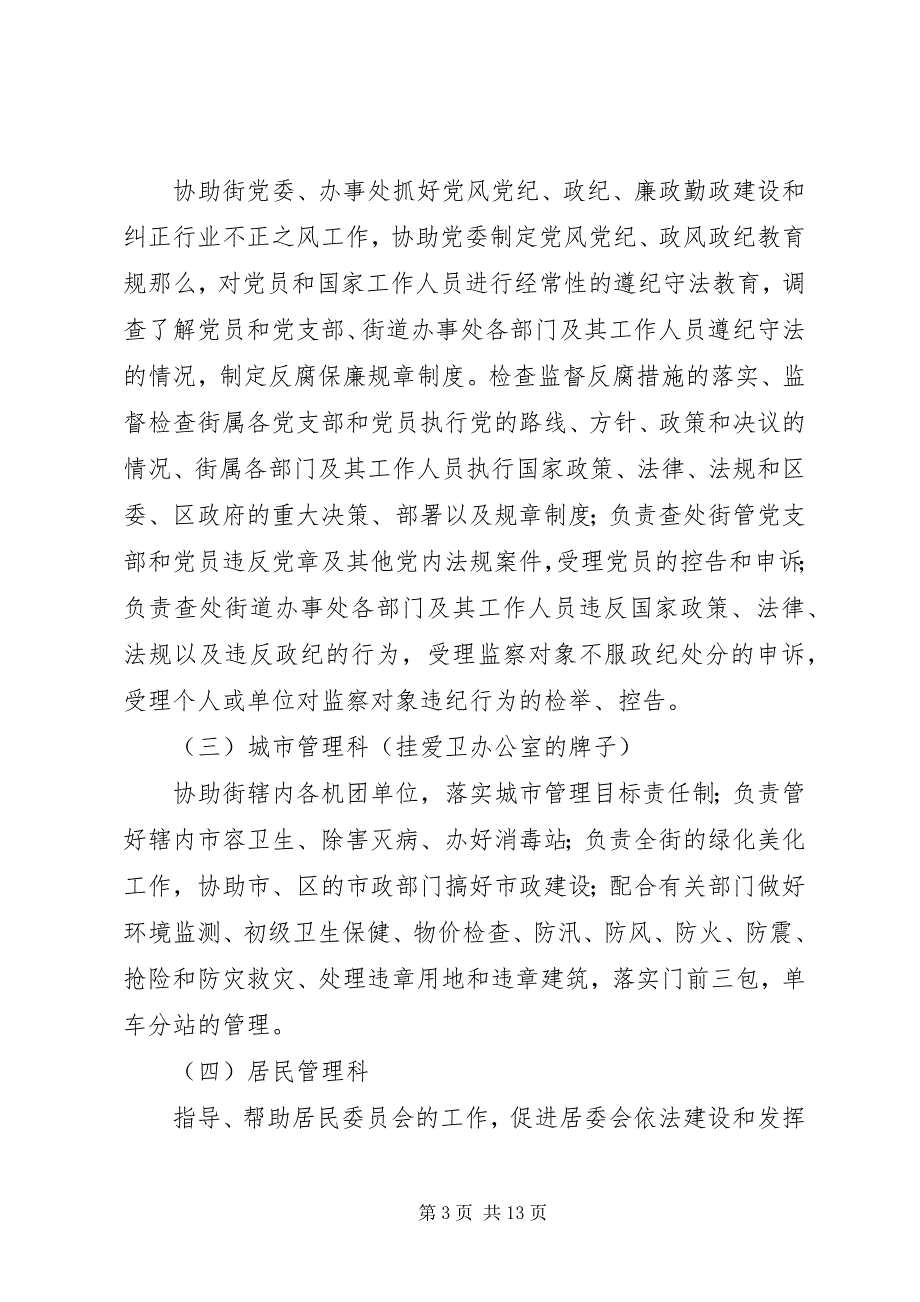 协助街党委、办事处抓好党风党纪、政纪、廉政勤政建设和
纠正行业不正之风工作，协助党委制定党风党纪、政风政纪教育
规那么，对党员和国家工作人员进行经常性的遵纪守法教育，调
查了解党员和党支部、街道办事处各部门及其工作人员遵纪守法
的情况，制定反腐保廉规章制度。检查监督反腐措施的落实、监
督检查街属各党支部和党员执行党的路线、方针、政策和决议的
情况、街属各部门及其工作人员执行国家政策、法律、法规和区
委、区政府的重大决策、部署以及规章制度；负责查处街管党支
部和党员违反党章及其他党内法规案件，受理党员的控告和申诉；
负责查处街道办事处各部门及其工作人员违反国家政策、法律、
法规以及违反政纪的行为，受理监察对象不服政纪处分的申诉，
受理个人或单位对监察对象违纪行为的检举、控告。
（三）城市管理科（挂爱卫办公室的牌子）
协助街辖内各机团单位，落实城市管理目标责任制；负责管
好辖内市容卫生、除害灭病、办好消毒站；负责全街的绿化美化
工作，协助市、区的市政部门搞好市政建设；配合有关部门做好
环境监测、初级卫生保健、物价检查、防汛、防风、防火、防震、
抢险和防灾救灾、处理违章用地和违章建筑，落实门前三包，单
车分站的管理。
（四）居民管理科
指导、帮助居民委员会的工作，促进居委会依法建设和发挥
第 3 页 共 13 页